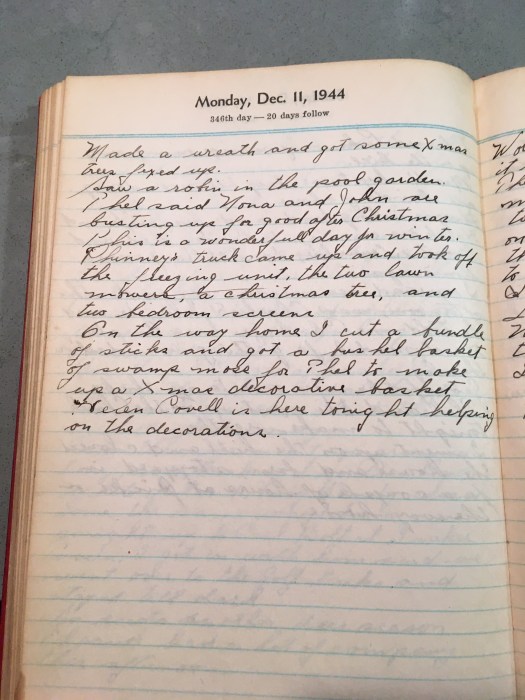 Monday, Dec. 11, 1944
346th day — 20 days follow
Made a wreath and got some Xmas
trees fixed up.
Saw a robin in the pool garden.
Phel said Nona and John are
busting up for good after Christmas
This is a wonderfull day for winter.
Phinney's truck came up and took off
the freezing unit, the two lawn
mowers, a christmas tree, and
two bedroom screens
On the way home I cut a bundle
of sticks and got a bushel basket
of swamp moss for Phel to make
up a Xmas decorative basket
Helen Covell is here tonight helping
on the decorations.